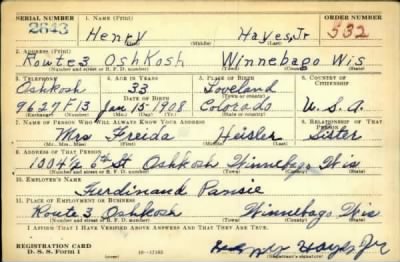 SERIAL NUMBER 1. NAME (Print) ORDER NUMBER
2643 Henry Hayes, Jr 532
(First) (Middle) (Last)
2. ADDRESS (Print)
Route 3 Oshkosh Winnebago Wis
(Number and street or R. F. D. number) (Town) (County) (State)
3. TELEPHONE 4. AGE IN YEARS 5. PLACE OF BIRTH 6. COUNTRY OF CITIZENSHIP
Oshkosh 33 Loveland
DATE OF BIRTH (Town or county)
9627F13 Jan 15 1908 Colorado U.S.A.
(Exchange) (Number) (Mo.) (Day) (Yr.) (State or country)
7. NAME OF PERSON WHO WILL ALWAYS KNOW YOUR ADDRESS 8. RELATIONSHIP OF THAT PERSON
Mrs Freida Heisler Sister
(Mr., Mrs., Miss) (First) (Middle) (Last)
9. ADDRESS OF THAT PERSON
1004½ 6th St Oshkosh Winnebago Wis
(Number and street or R. F. D. number) (Town) (County) (State)
10. EMPLOYER'S NAME
Ferdinand Pansie
11. PLACE OF EMPLOYMENT OR BUSINESS
Route 3 Oshkosh Winnebago Wis
(Number and street or R. F. D. number) (Town) (County) (State)
I AFFIRM THAT I HAVE VERIFIED ABOVE ANSWERS AND THAT THEY ARE TRUE.
REGISTRATION CARD
D. S. S. Form 1 Hayes Jr
(Registrant's signature)